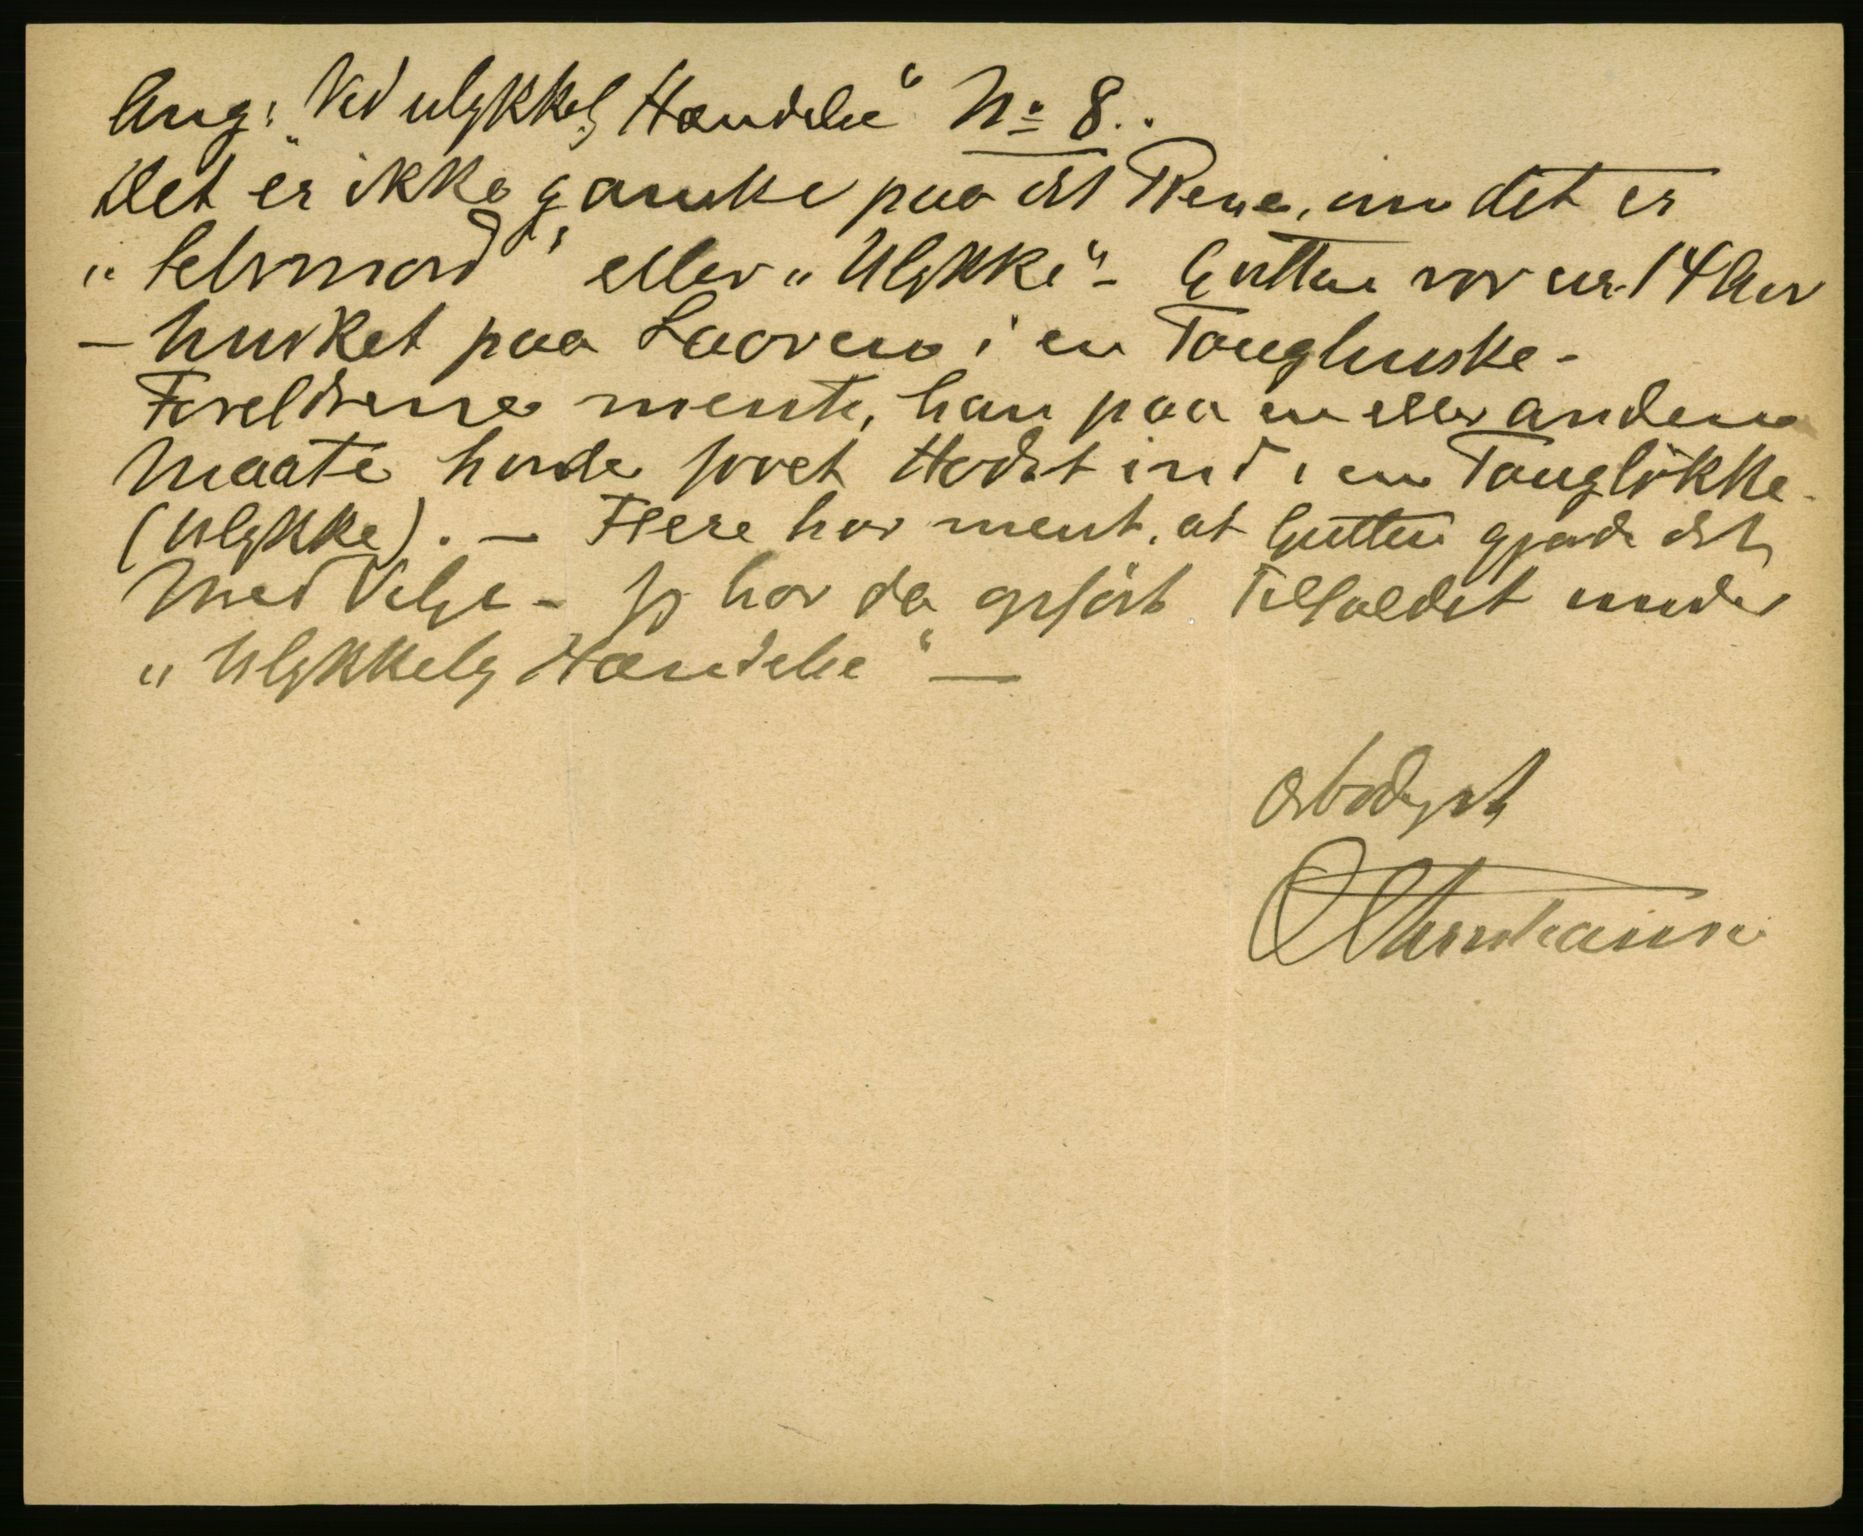 Ang: „Ved ulykkelg Hændelse“ No 8..
Det er ikke ganske paa det Rene, om det er
„Selvmord“ eller „Ulykke“ - Gutten var ca. 14 Aar
- husket paa Laaven i en Toughuske -
Foreldrene mente, han paa en eller anden
Maate havde faaet Hodet ind i en Tougløkke -
(Ulykke). - Flere har ment, at Gutten gjorde det
Med Vilje - Jg har da opført Tilfældet under
„Ulykkelg Hændelse“ —
Ærbødigst